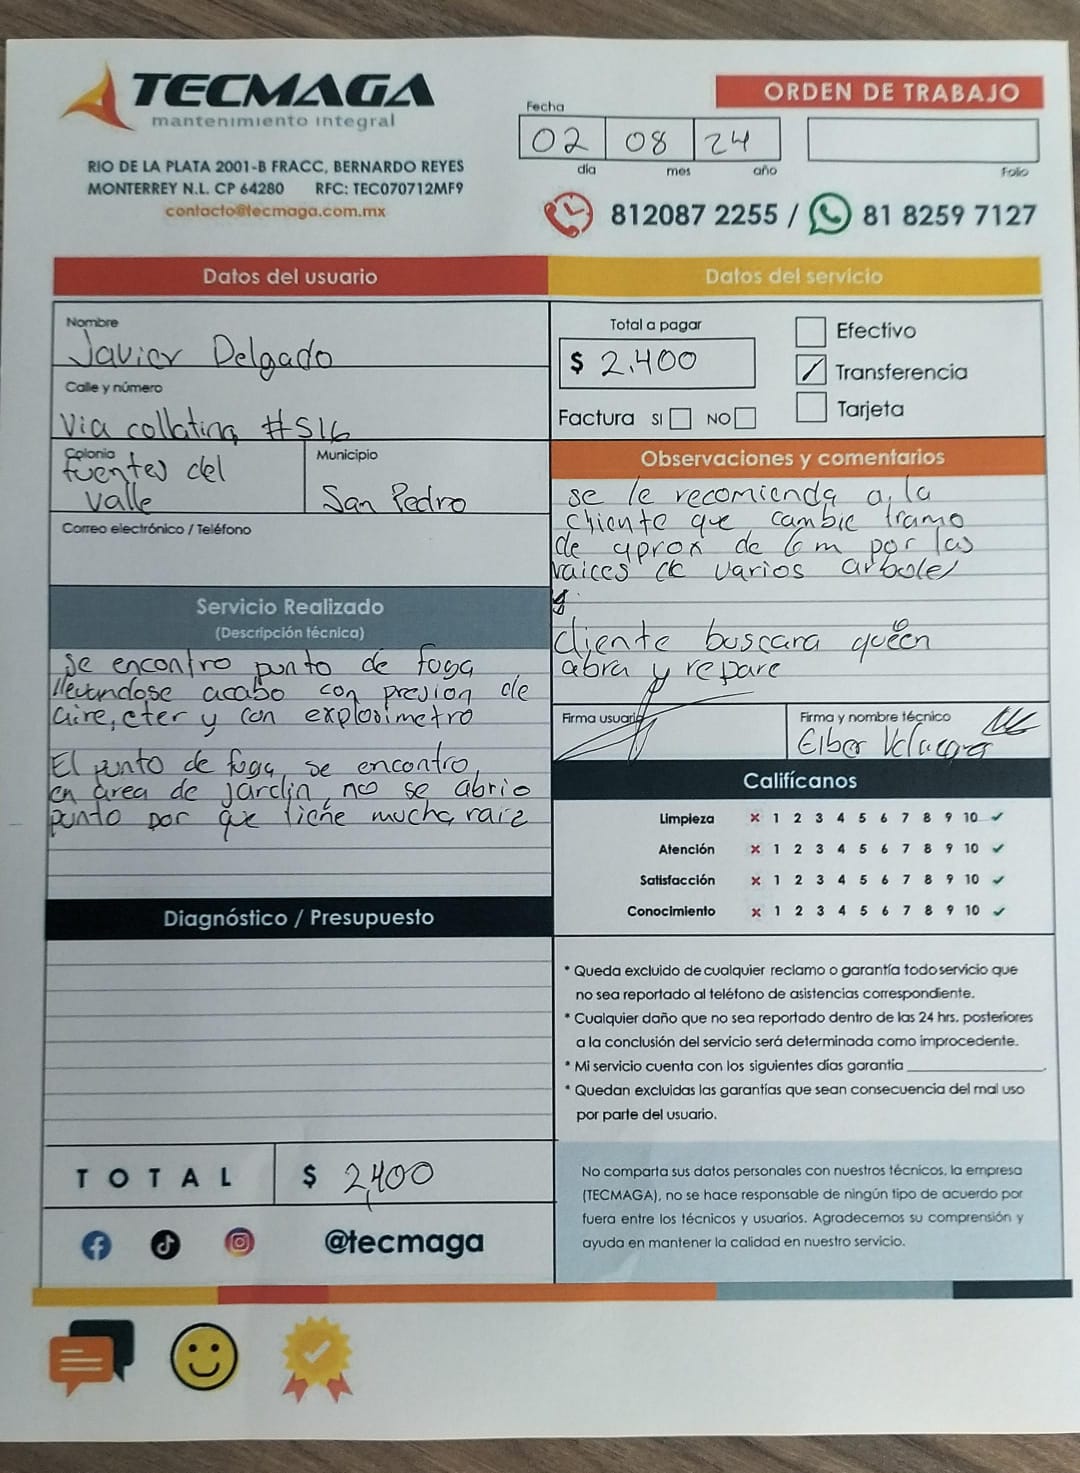 TECMAGA
mantenimiento integral
RIO DE LA PLATA 2001-B FRACC, BERNARDO REYES
MONTERREY N.L. CP 64280 RFC: TEC070712MF9
contacto@tecmaga.com.mx
ORDEN DE TRABAJO
Fecha
02 08 24
día mes año
Folio
812087 2255 / 81 8259 7127
Datos del usuario
Nombre
Javier Delgado
Calle y número
Via collatina #516
Colonia
fuentes del
valle
Municipio
San Pedro
Correo electrónico / Teléfono
Servicio Realizado
(Descripción técnica)
se encontro punto de foga
llevandose acabo con presion de
aire, eter y con explosimetro
El punto de fuga se encontro
en area de jardin, no se abrio
punto por que tiene mucha raiz
Diagnóstico / Presupuesto
TOTAL $ 2,400
@tecmaga
Datos del servicio
Total a pagar
$ 2.400
Efectivo
Transferencia
Tarjeta
Factura SI NO
Observaciones y comentarios
se le recomienda a la
cliente que cambie tramo
de aprox de 6m por las
raices de varios arboles
cliente buscara queen
abra y repare
Firma usuario
Firma y nombre técnico
Elber
Califícanos
Limpieza × 1 2 3 4 5 6 7 8 9 10 ✓
Atención × 1 2 3 4 5 6 7 8 9 10 ✓
Satisfacción × 1 2 3 4 5 6 7 8 9 10 ✓
Conocimiento × 1 2 3 4 5 6 7 8 9 10 ✓
* Queda excluido de cualquier reclamo o garantía todo servicio que
no sea reportado al teléfono de asistencias correspondiente.
* Cualquier daño que no sea reportado dentro de las 24 hrs. posteriores
a la conclusión del servicio será determinada como improcedente.
* Mi servicio cuenta con los siguientes días garantía ____________.
* Quedan excluidas las garantías que sean consecuencia del mal uso
por parte del usuario.
No comparta sus datos personales con nuestros técnicos, la empresa
(TECMAGA), no se hace responsable de ningún tipo de acuerdo por
fuera entre los técnicos y usuarios. Agradecemos su comprensión y
ayuda en mantener la calidad en nuestro servicio.